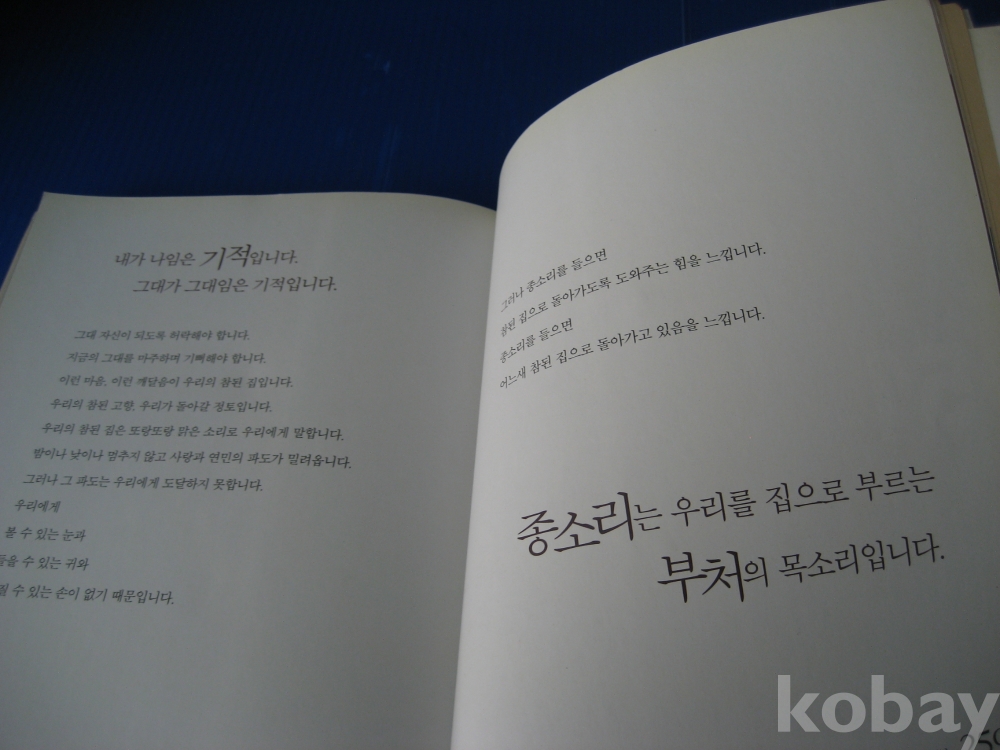 내가 나임은 기적입니다.
그대가 그대임은 기적입니다.
그대 자신이 되도록 허락해야 합니다.
지금의 그대를 마주하며 기뻐해야 합니다.
이런 마음, 이런 깨달음이 우리의 참된 집입니다.
우리의 참된 고향, 우리가 돌아갈 정토입니다.
우리의 참된 집은 또랑또랑 맑은 소리로 우리에게 말합니다.
밤이나 낮이나 멈추지 않고 사랑과 연민의 파도가 밀려옵니다.
그러나 그 파도는 우리에게 도달하지 못합니다.
우리에게
볼 수 있는 눈과
들을 수 있는 귀와
수 있는 손이 없기 때문입니다.
그러나 종소리를 들으면
참된 집으로 돌아가도록 도와주는 힘을 느낍니다.
종소리를 들으면
어느새 참된 집으로 돌아가고 있음을 느낍니다.
종소리는 우리를 집으로 부르는
부처의 목소리입니다.
kobay